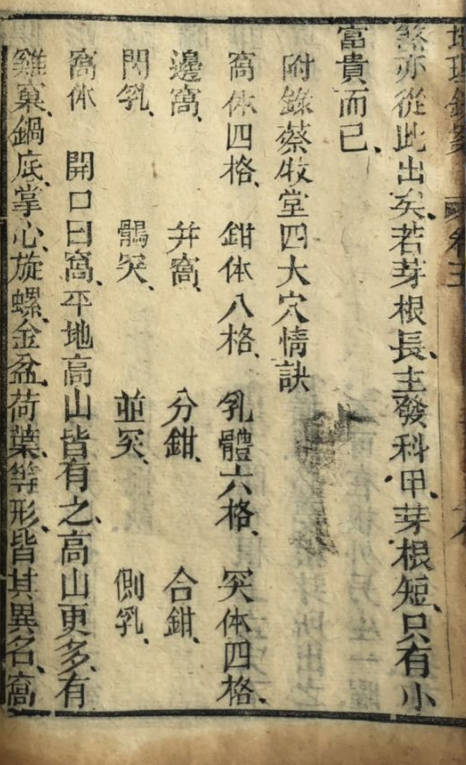 煞亦從此出矣、若芽根長、主發科甲、芽根短、只有小
富貴而已、
附錄蔡牧堂四大穴情訣
窩体四格、鉗体八格、乳體六格、突体四格、
邊窩、并窩、分鉗、合鉗、
閃乳、鶻突、並突、側乳、
窩体 開口曰窩、平地高山皆有之、高山更多、有
雞窠、鍋底、掌心、旋螺、金盆、荷葉等形、皆其異名、窩